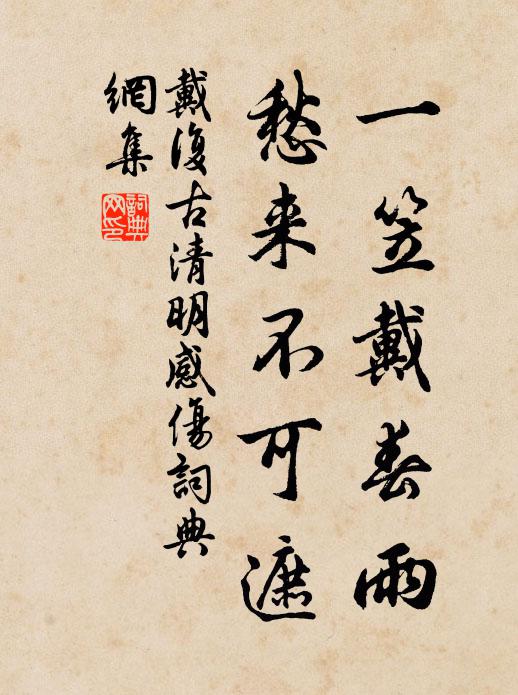 一笠戴春雨
愁来不可遮
戴復古清明感傷詞典
網集
詞典
网印